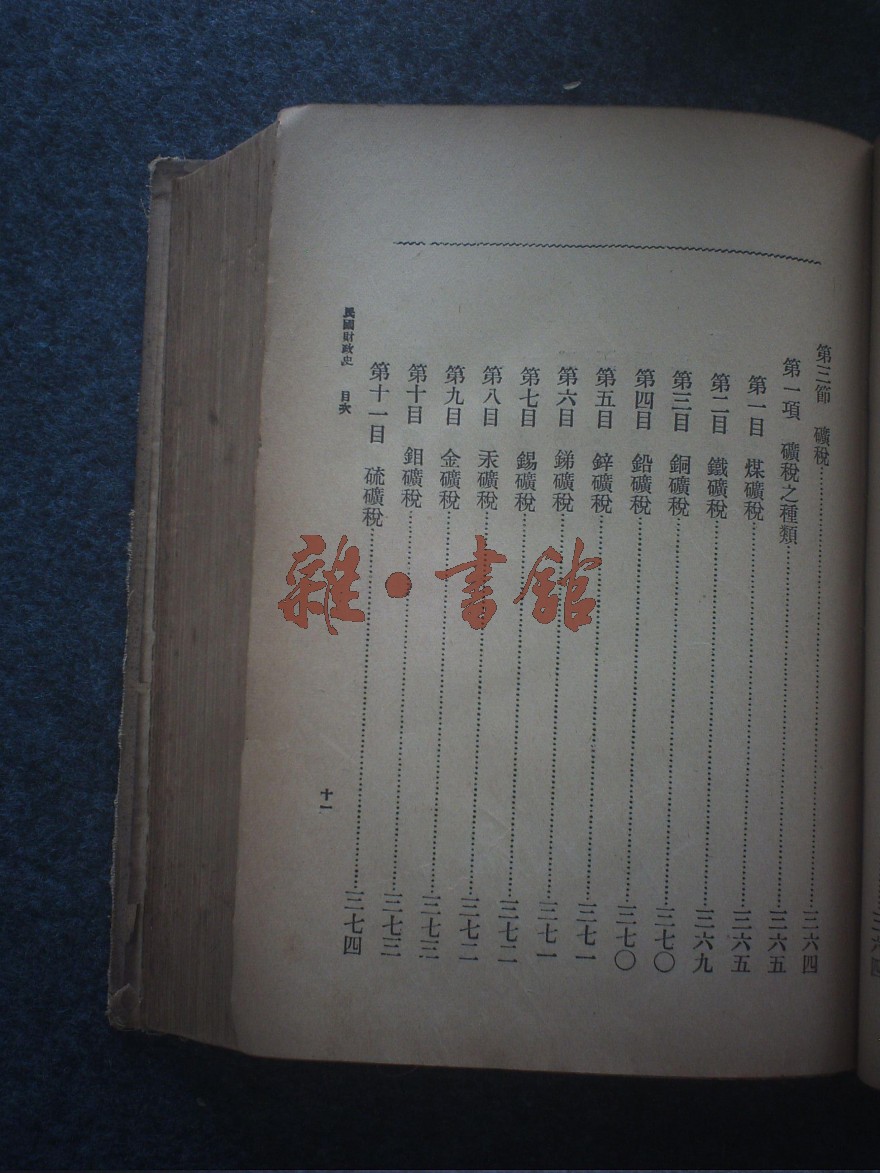 第三節　礦稅………三六四
第一項　礦稅之種類………三六五
第一目　煤礦稅………三六五
第二目　鐵礦稅………三六九
第三目　銅礦稅………三七〇
第四目　鉛礦稅………三七〇
第五目　鋅礦稅………三七一
第六目　銻礦稅………三七一
第七目　錫礦稅………三七二
第八目　汞礦稅………三七二
第九目　金礦稅………三七三
第十目　鉬礦稅………三七三
第十一目　硫礦稅………三七四
民國財政史　目次
十一
雜·書館
三六四